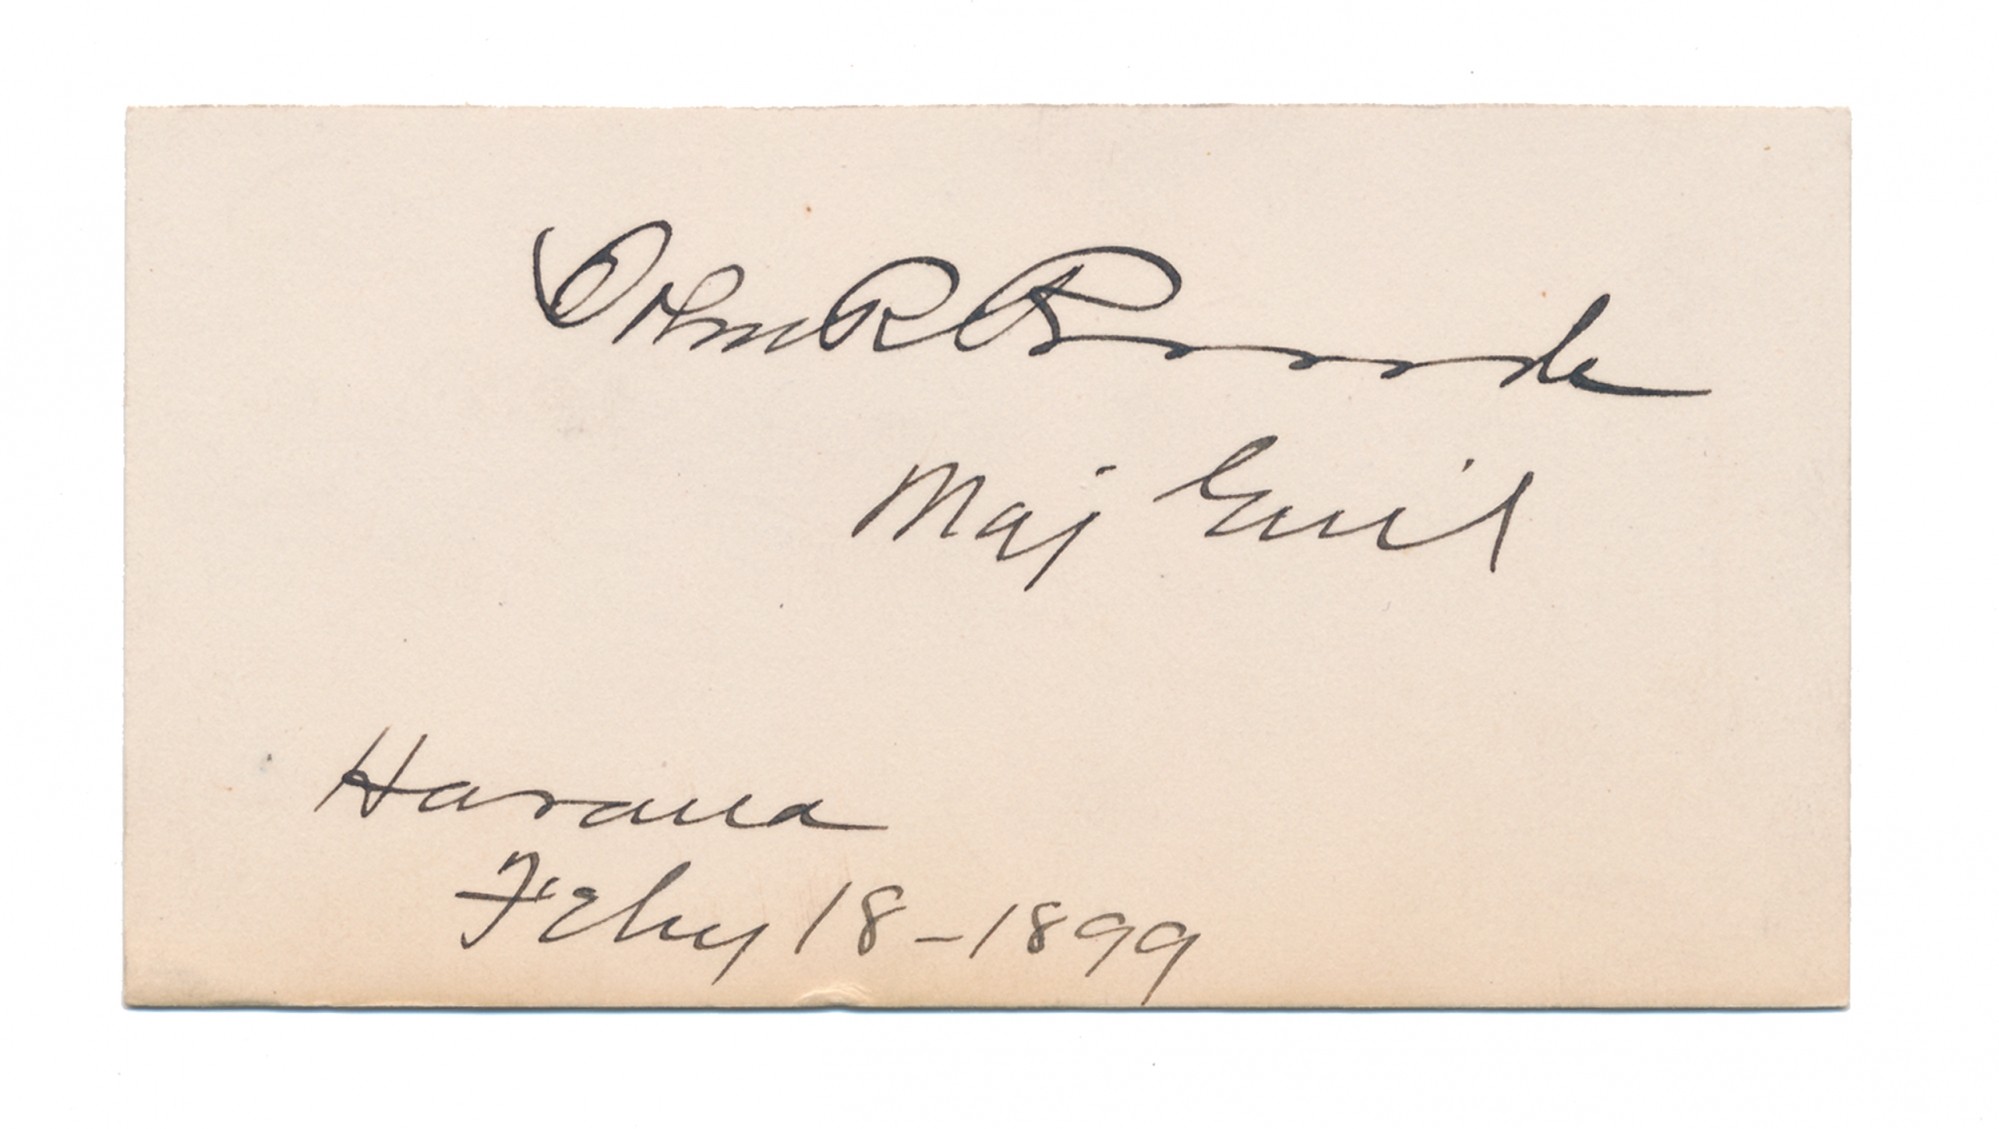 John R Brooke
Maj Gen'l
Havana
Feb'y 18 - 1899